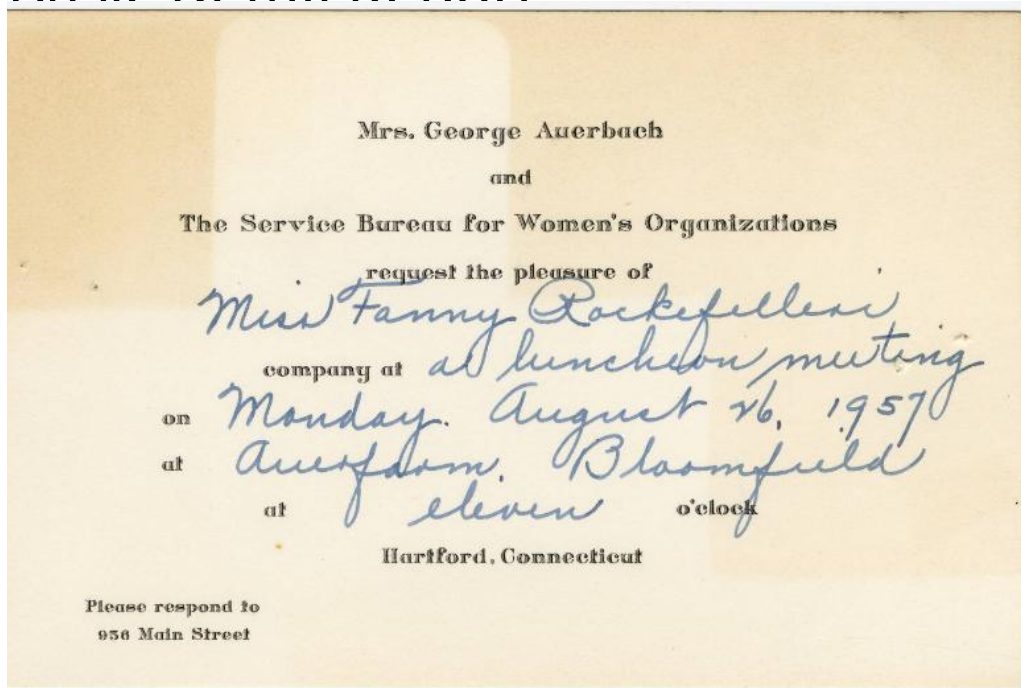 Mrs. George Auerbach
and
The Service Bureau for Women's Organizations
request the pleasure of
Miss Fanny Rockefeller's
company at a luncheon meeting
on Monday. August 26, 1957
at Auerfarm, Bloomfield
at eleven o'clock
Hartford, Connecticut
Please respond to
956 Main Street